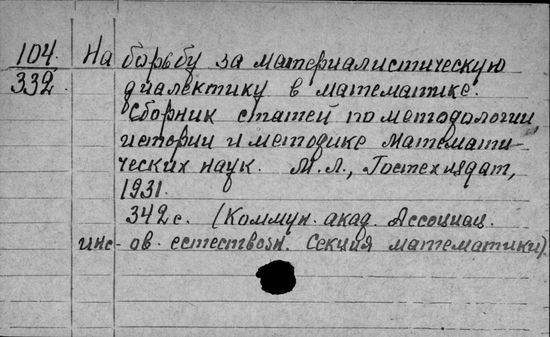 104.
332
На борьбу за материалистическую
диалектику в математике.
Сборник статей по методологии
истории и методике математи-
ческих наук. М.Л., Гостехиздат,
1931.
342 с. (Коммун. акад. Ассоциац.
инс-ов. естествозн. Секция математики).